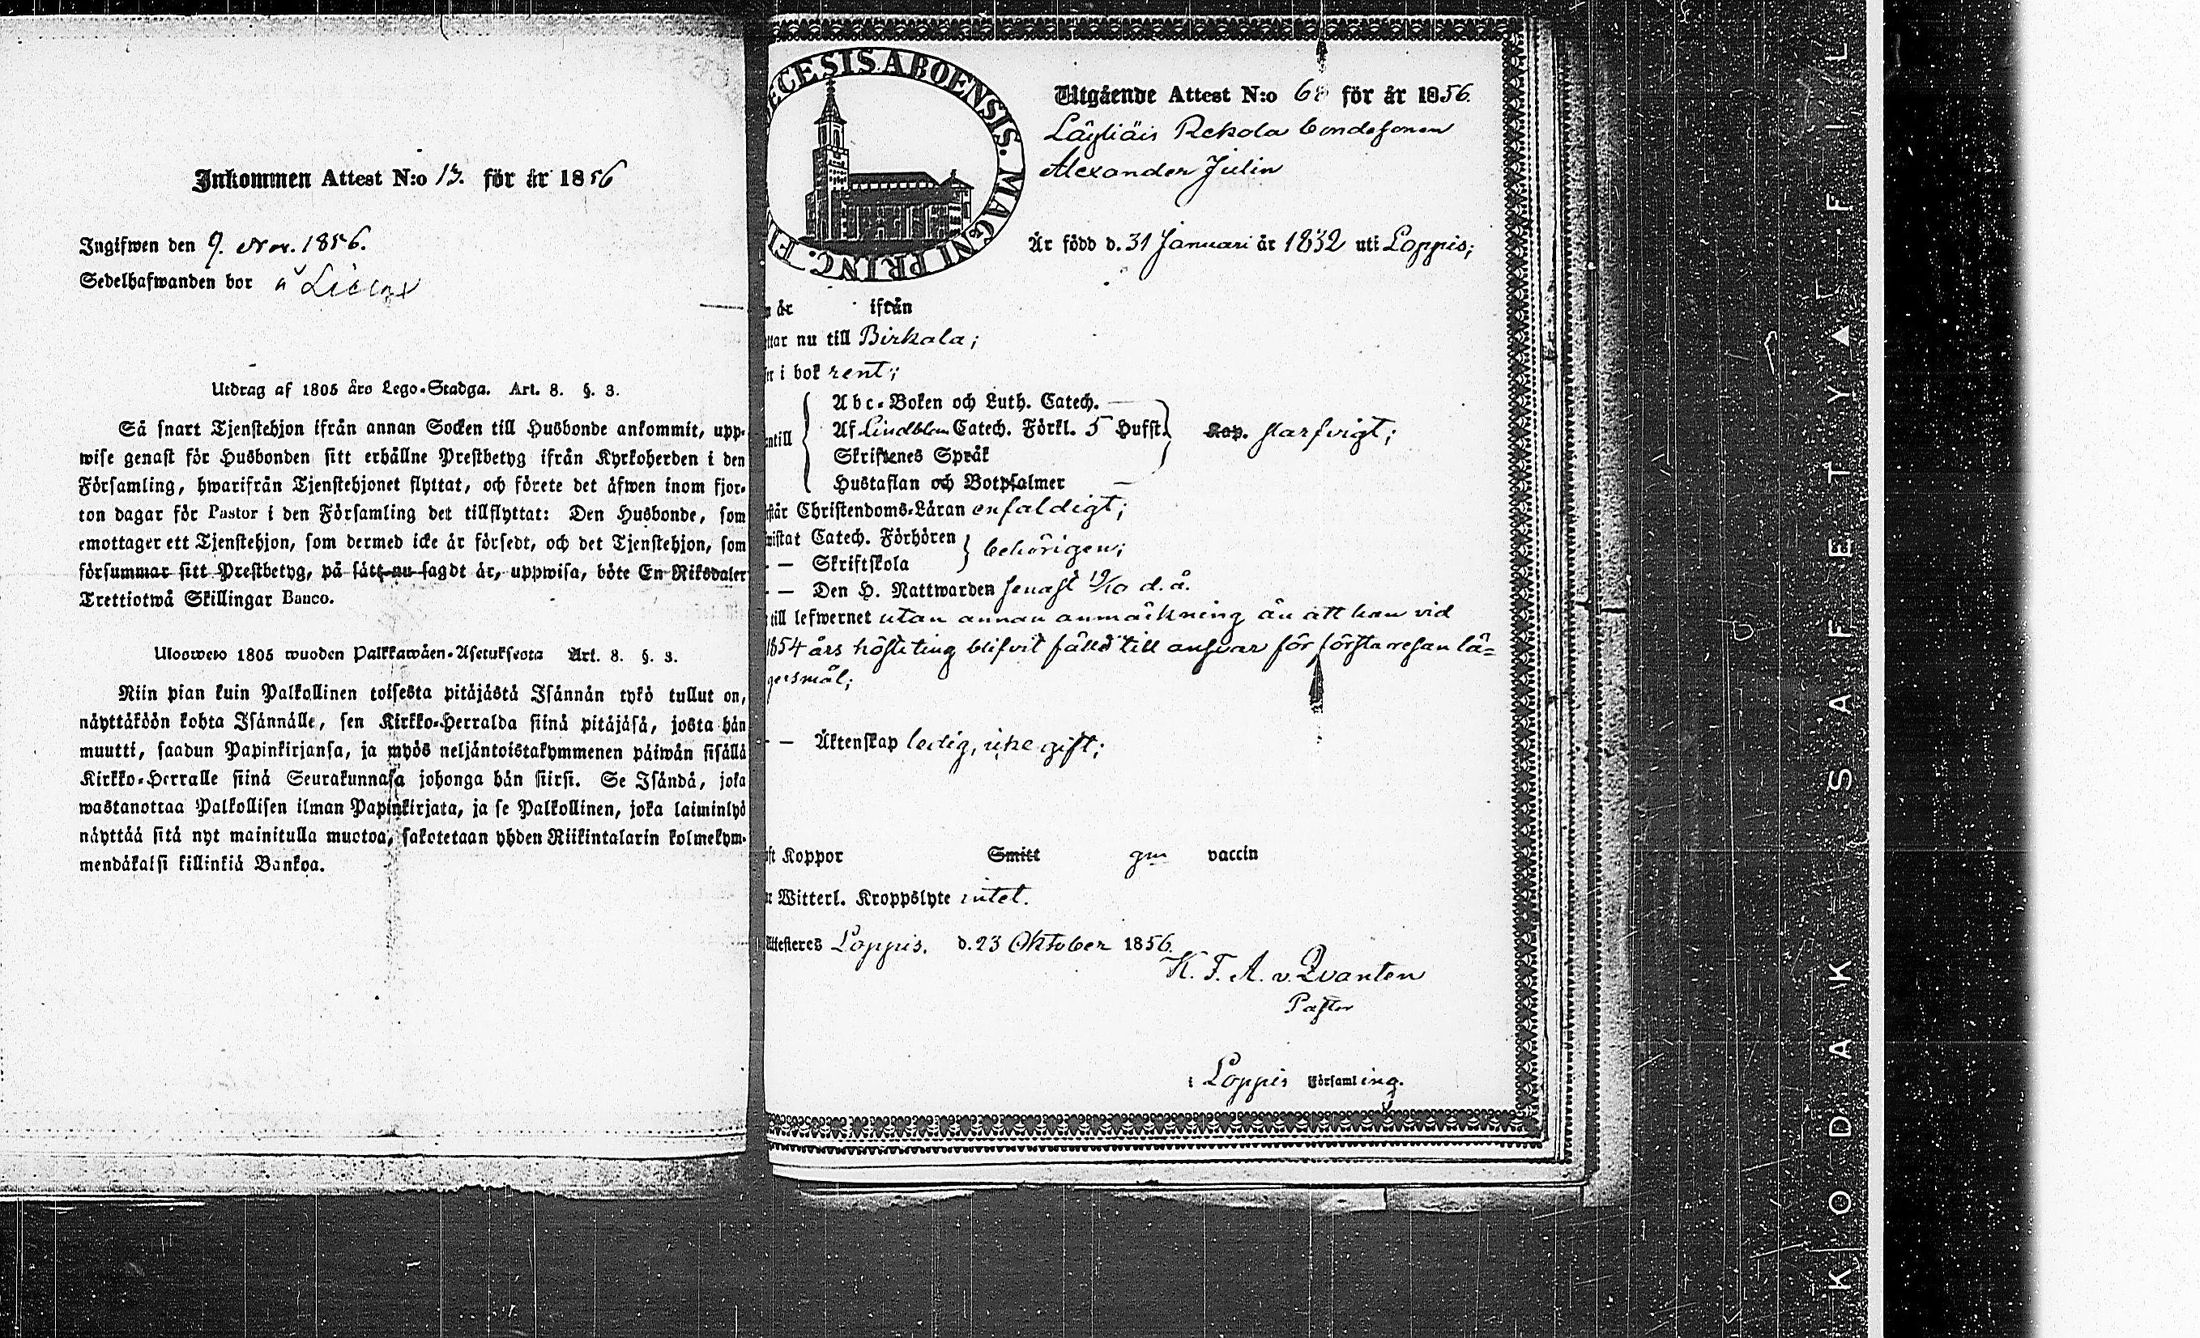 Inkommen Attest N:o 13. för år 1856
Ingifwen den 9. Nov. 1856.
Sedelhafwanden bor å
Utdrag af 1805 års Lego-Stadga. Art. 8. §. 3.
Så snart Tjenstehjon ifrån annan Socken till Husbonde ankommit, upp-
wise genast för Husbonden sitt erhållne Prestbetyg ifrån Kyrkoherden i den
Församling, hwarifrån Tjenstehjonet flyttat, och förete det äfwen inom fjor-
ton dagar för Pastor i den Församling det tillflyttat: Den Husbonde, som
emottager ett Tjenstehjon, som dermed icke är försedt, och det Tjenstehjon, som
försummar sitt Prestbetyg, på sätt nu sagdt är, uppwisa, böte En Riksdaler
Trettiotwå Skillingar Banco.
Ulosweto 1805 wuoden Palkkawäen-Asetuksesta Art. 8. §. 3.
Niin pian kuin Palkollinen toisesta pitäjästä Isännän tykö tullut on,
näyttäköön kohta Isännälle, sen Kirkko-Herralda siinä pitäjäsä, josta hän
muutti, saadun Papinkirjansa, ja myös neljäntoistakymmenen päiwän sisällä
Kirkko-Herralle siinä Seurakunnasa johonga hän siirsi. Se Isändä, joka
wastanottaa Palkollisen ilman Papinkirjata, ja se Palkollinen, joka laiminlyö
näyttää sitä nyt mainitulla muotoa, sakotetaan yhden Riikintalarin kolmekym-
mendäkaksi killinkiä Bankoa.
ECESIS ABOENSIS. MAGNI PRINC. F
Utgående Attest N:o 68 för år 1856.
Läyliäis Rekola bondesonen
Alexander Julin
Är född d. 31 Januari år 1832 uti Loppis;
år ifrån
ttar nu till Birkala;
i bok rent;
Abc-Boken och Luth. Catech. —
ntill Af Lindblom Catech. Förkl. 5 Hufst. Kap. slarfvigt;
Skriftenes Språk
Hustaflan och Botpsalmer —
står Christendoms-Läran enfaldigt;
wistat Catech. Förhören behörigen;
— — Skriftskola
— — Den H. Nattwarden senast 19/10 d. å.
till lefwernet utan annan anmärkning än att han vid
1854 års höste ting blifvit fälld till ansvar för första resan lä=
gersmål;
— — Äktenskap ledig, icke gift;
ft Koppor Smitt gm vaccin
Witterl. Kroppslyte intet.
Attesteres Loppis. d. 23 Oktober 1856.
K. F. A. v. Qvanten
Pastor
i Loppis Församling.
KODAK SAFETY ▲ FIL